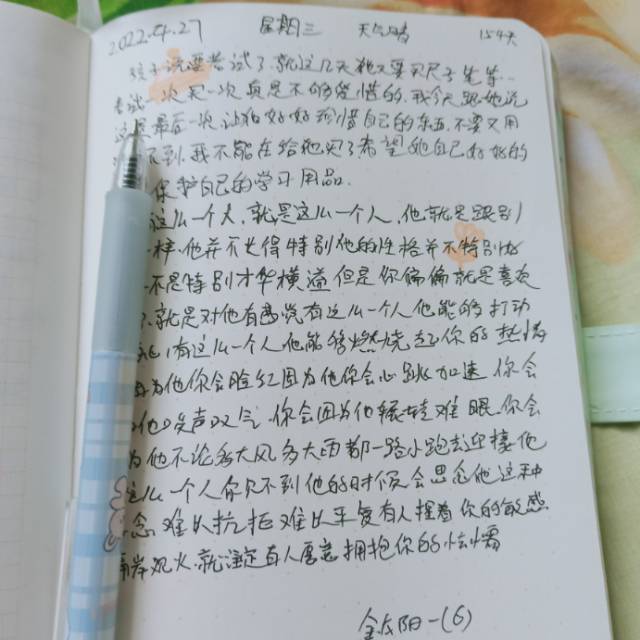 2022.4.27 星期三 天气晴 154天
考试了就这几天她又要买尺子笔等
一次买一次真是不够爱惜的,我今天跟她说
最后一次,让她好好珍惜自己的东西,不要又用
不到,我不能在给她买了希望她自己好好的
保护自己的学习用品.
这么一个夫,就是这么一个人,他就是跟别
一样,他并不长得特别他的性格并不特别好
不是特别才华横溢但是你偏偏就是喜欢
就是对他有感觉有这么一个人他能够打动
有这么一个人他能够燃烧起你的热情
因为他你会脸红因为他你会心跳加速,你会
唉声叹气,你会因为他辗转难眠,你会
为他不论多大风多大雨都一路小跑去迎接他
这么一个人你见不到他的时候会思念他这种
念,难以抗拒难以平复有人捏着你的敏感
观火.就注定有人愿意拥抱你的怯懦
阳一(6)